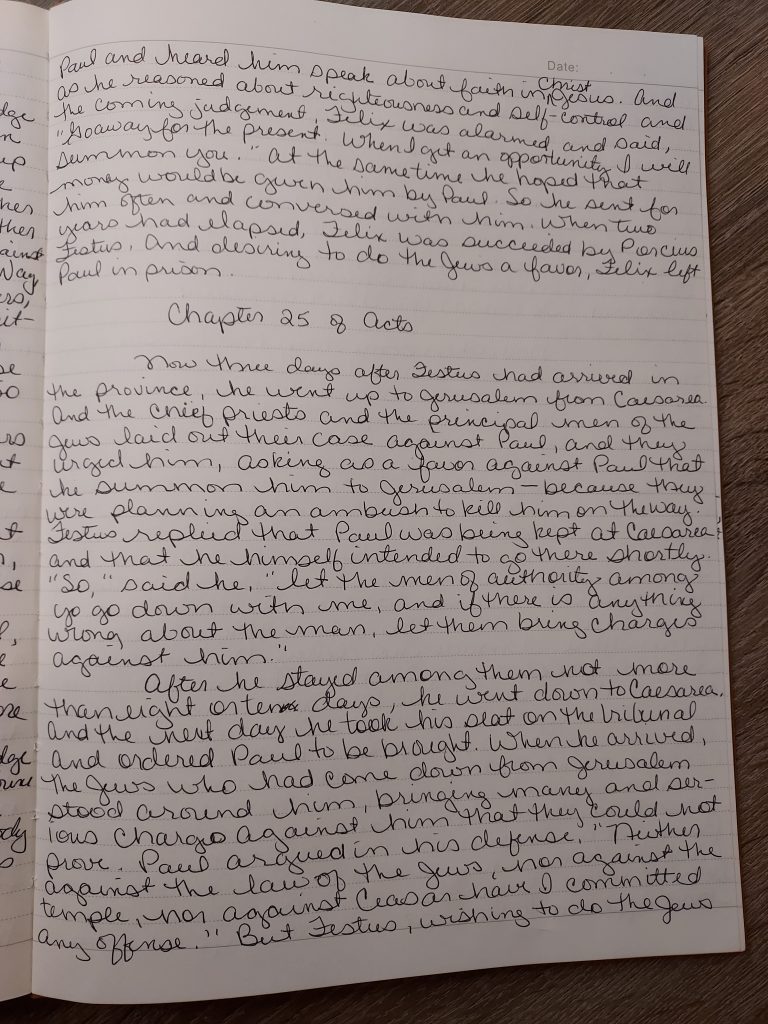 Date:
Paul and heard him speak about faith in Christ Jesus. And
as he reasoned about righteousness and self-control and
the coming judgement, Felix was alarmed and said,
"Go away for the present. When I get an opportunity I will
summon you." At the same time he hoped that
money would be given him by Paul. So he sent for
him often and conversed with him. When two
years had elapsed, Felix was succeeded by Porcius
Festus. And desiring to do the Jews a favor, Felix left
Paul in prison.
Chapter 25 of Acts
Now three days after Festus had arrived in
the province, he went up to Jerusalem from Caesarea.
And the chief priests and the principal men of the
Jews laid out their case against Paul, and they
urged him, asking as a favor against Paul that
he summon him to Jerusalem - because they
were planning an ambush to kill him on the way.
Festus replied that Paul was being kept at Caesarea
and that he himself intended to go there shortly.
"So," said he, "let the men of authority among
yo go down with me, and if there is anything
wrong about the man, let them bring charges
against him."
After he stayed among them not more
than eight or ten days, he went down to Caesarea.
And the next day he took his seat on the tribunal
and ordered Paul to be brought. When he arrived,
the Jews who had come down from Jerusalem
stood around him, bringing many and ser-
ious charges against him that they could not
prove. Paul argued in his defense, "Neither
against the law of the Jews, nor against the
temple, nor against Ceasar have I committed
any offense." But Festus, wishing to do the Jews